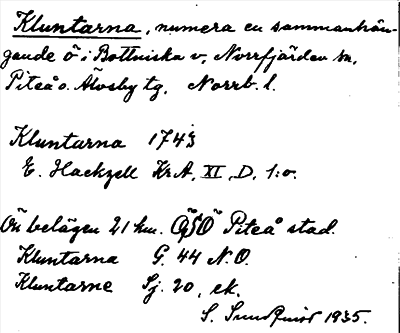 Kluntarna, numera en sammanhän-
gande ö i Bottniska v, Norrfjärden sn,
Piteå o. Älvsby tg, Norrb. l.
Kluntarna 1743
E. Hackzell Kr.A, XI, D, 1:o.
Ön belägen 21 km. OSO Piteå stad.
Kluntarna G. 44 N.O.
Kluntarne Sj. 20, ek.
S. Sundquist 1935.